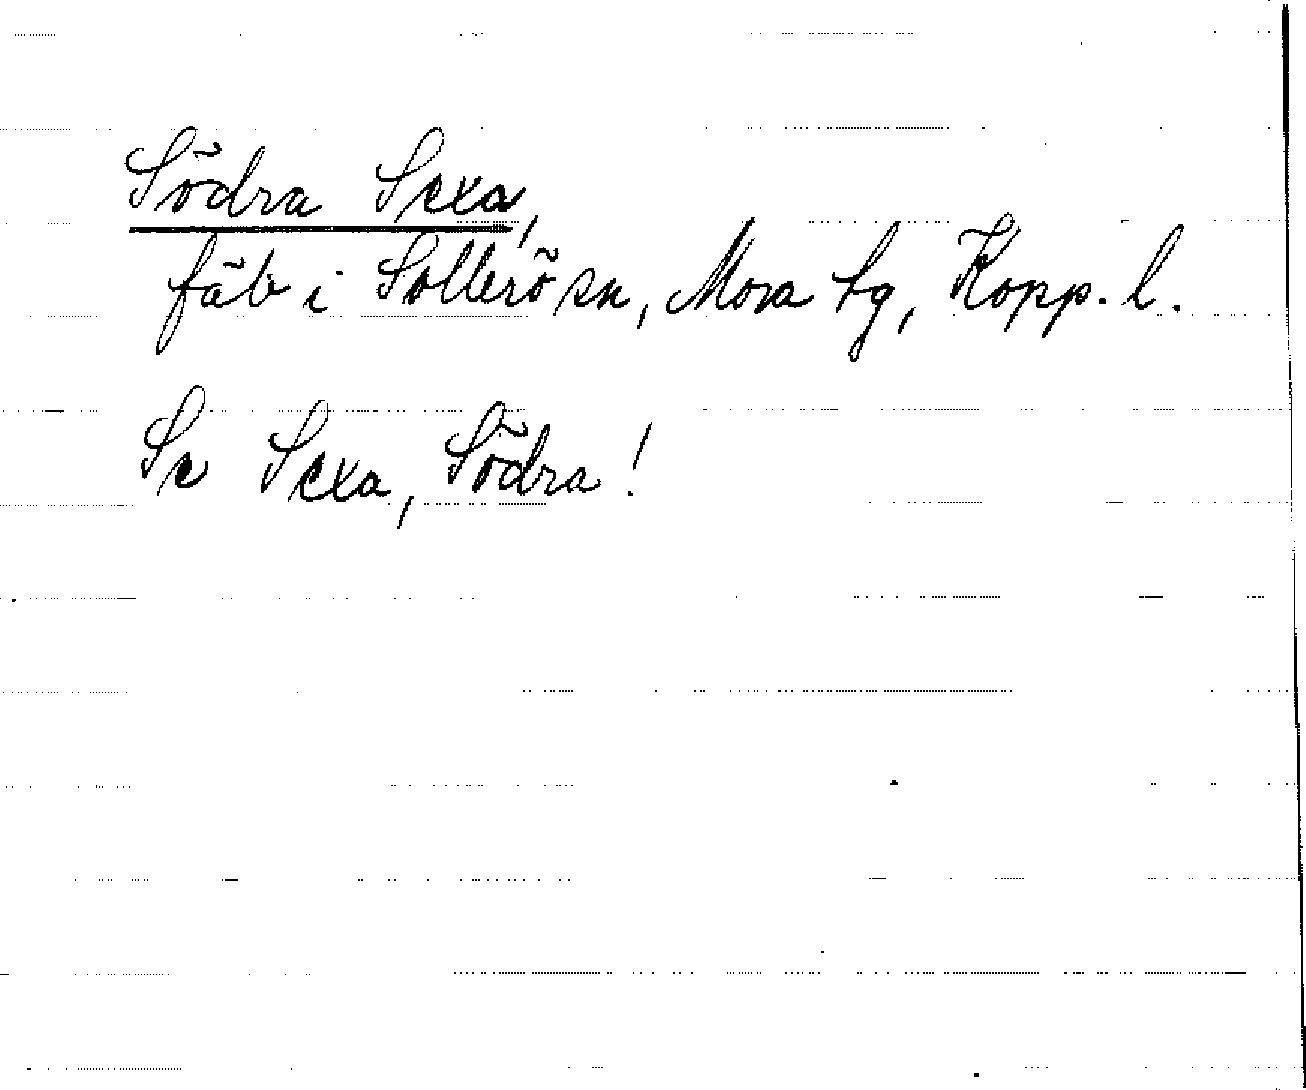 Södra Sexa,
fäb i Sollerö sn, Mora tg, Kopp. l.
Se Sexa, Södra!